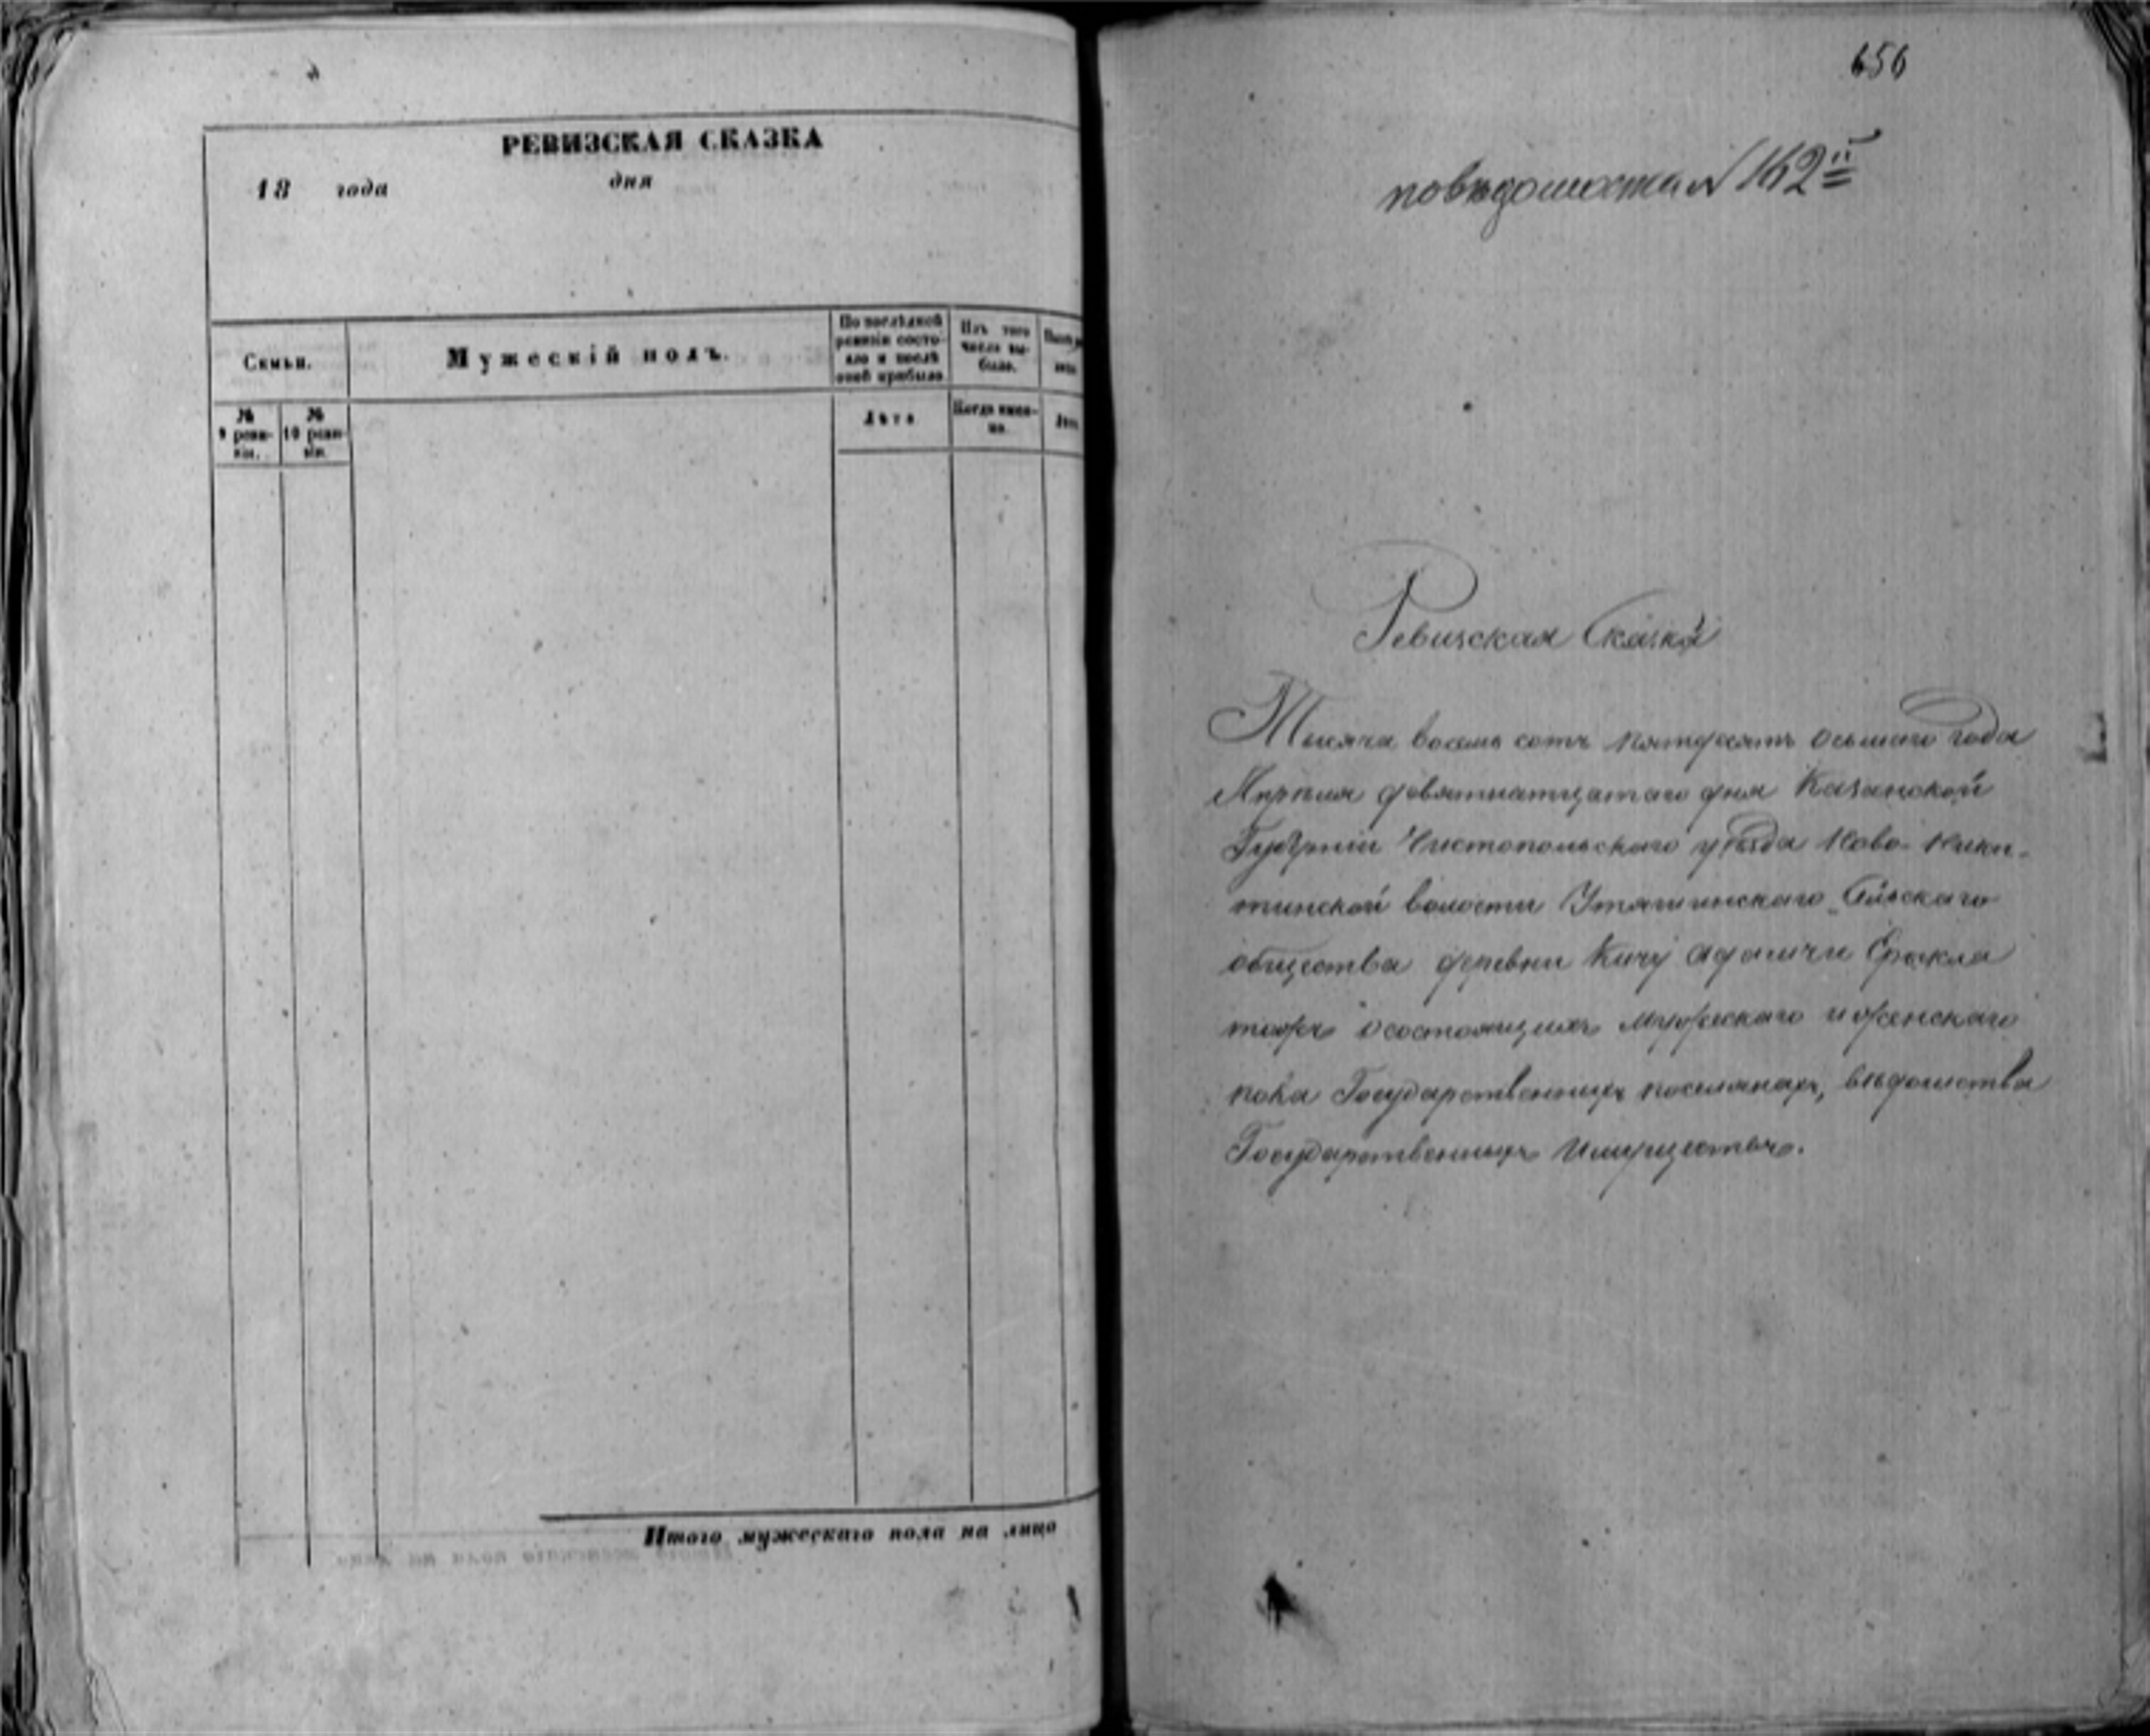 РЕВИЗСКАЯ СКАЗКА
18 года дня
Семьи.
Мужескій полъ.
По послѣдней ревизіи состояло и послѣ оной прибыло
Изъ того числа выбыло.
№ 9 ревизіи.
№ 10 ревизіи.
Лѣта
Когда именно.
Итого мужескаго пола на лицо
656
повѣдомости № 162
Ревизская Сказка
Тысяча восемь сотъ пятдесятъ осьмаго года
Апрѣля девятнатцатаго дня Казанской
Губерніи Чистопольскаго уѣзда Ново-Ники-
тинской волости Утяшинскаго Сельскаго
общества деревни Кичу Адамчи Ерыкла
тожъ о состоящихъ мужескаго и женскаго
пола Государственныхъ поселянахъ, вѣдомства
Государственныхъ Имуществъ.